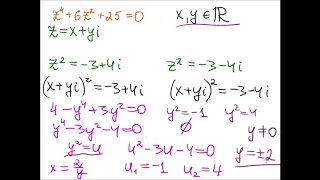 z⁴+6z²+25=0
x,y∈ℝ
z=x+yi
z²=-3+4i
z²=-3-4i
(x+yi)²=-3+4i
(x+yi)²=-3-4i
4-y⁴+3y²=0
y²=-1 y²=4
y⁴-3y²-4=0
∅
y≠0
y²=u
u²-3u-4=0
y=±2
x=2/y
u₁=-1 u₂=4